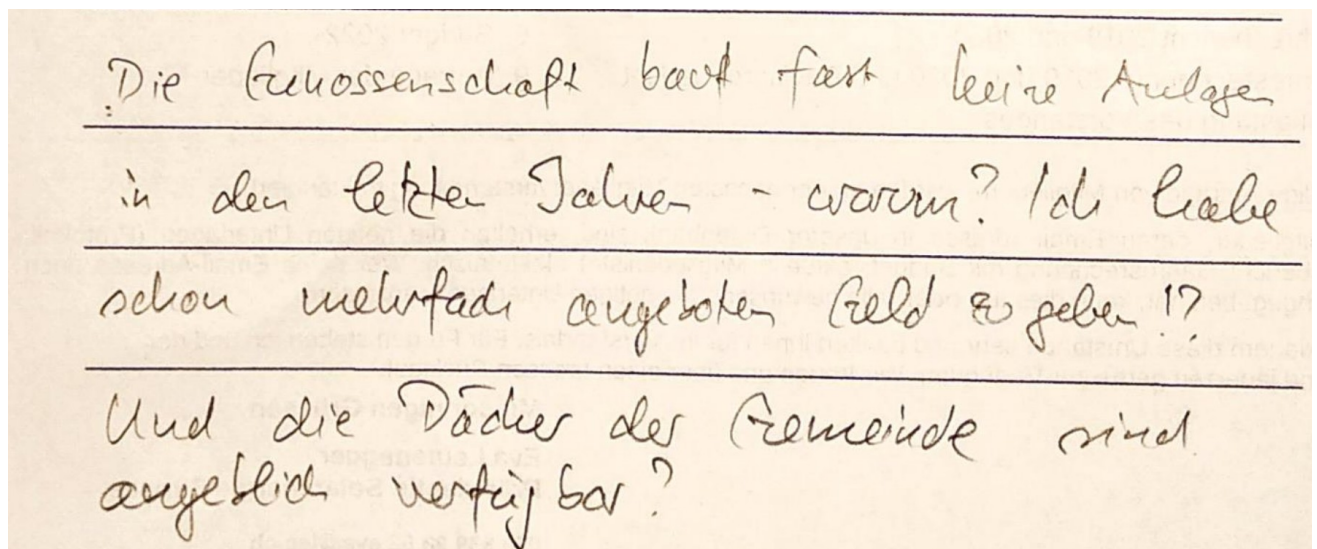 Die Genossenschaft baut fast keine Anlagen
in den letzten Jahren - warum? Ich habe
schon mehrfach angeboten Geld zu geben!?
Und die Dächer der Gemeinde sind
angeblich verfügbar?